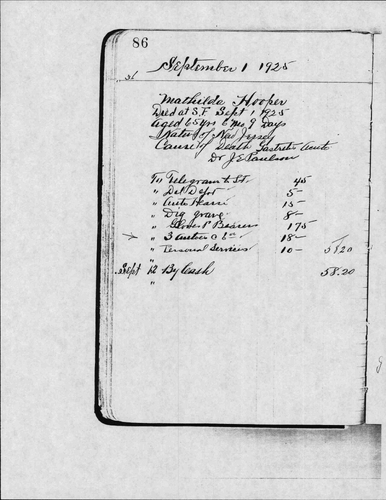 86
September 1 1925
Mathilda Hooper
Died at S.F. Sept 1 1925
Aged 65 yrs 6 mo 9 Days
Native of New Jersey
Cause of Death Gastritis Acute
Dr J.E. Paulson
To Telegram to St. 45
" Del Depot 5-
" Auto Hearse 15-
" Dig grave 8-
" Gloves P Bearers 175
" 3 Autos 18-
" Personal Services 10- 5820
Sept 12 By Cash 58.20